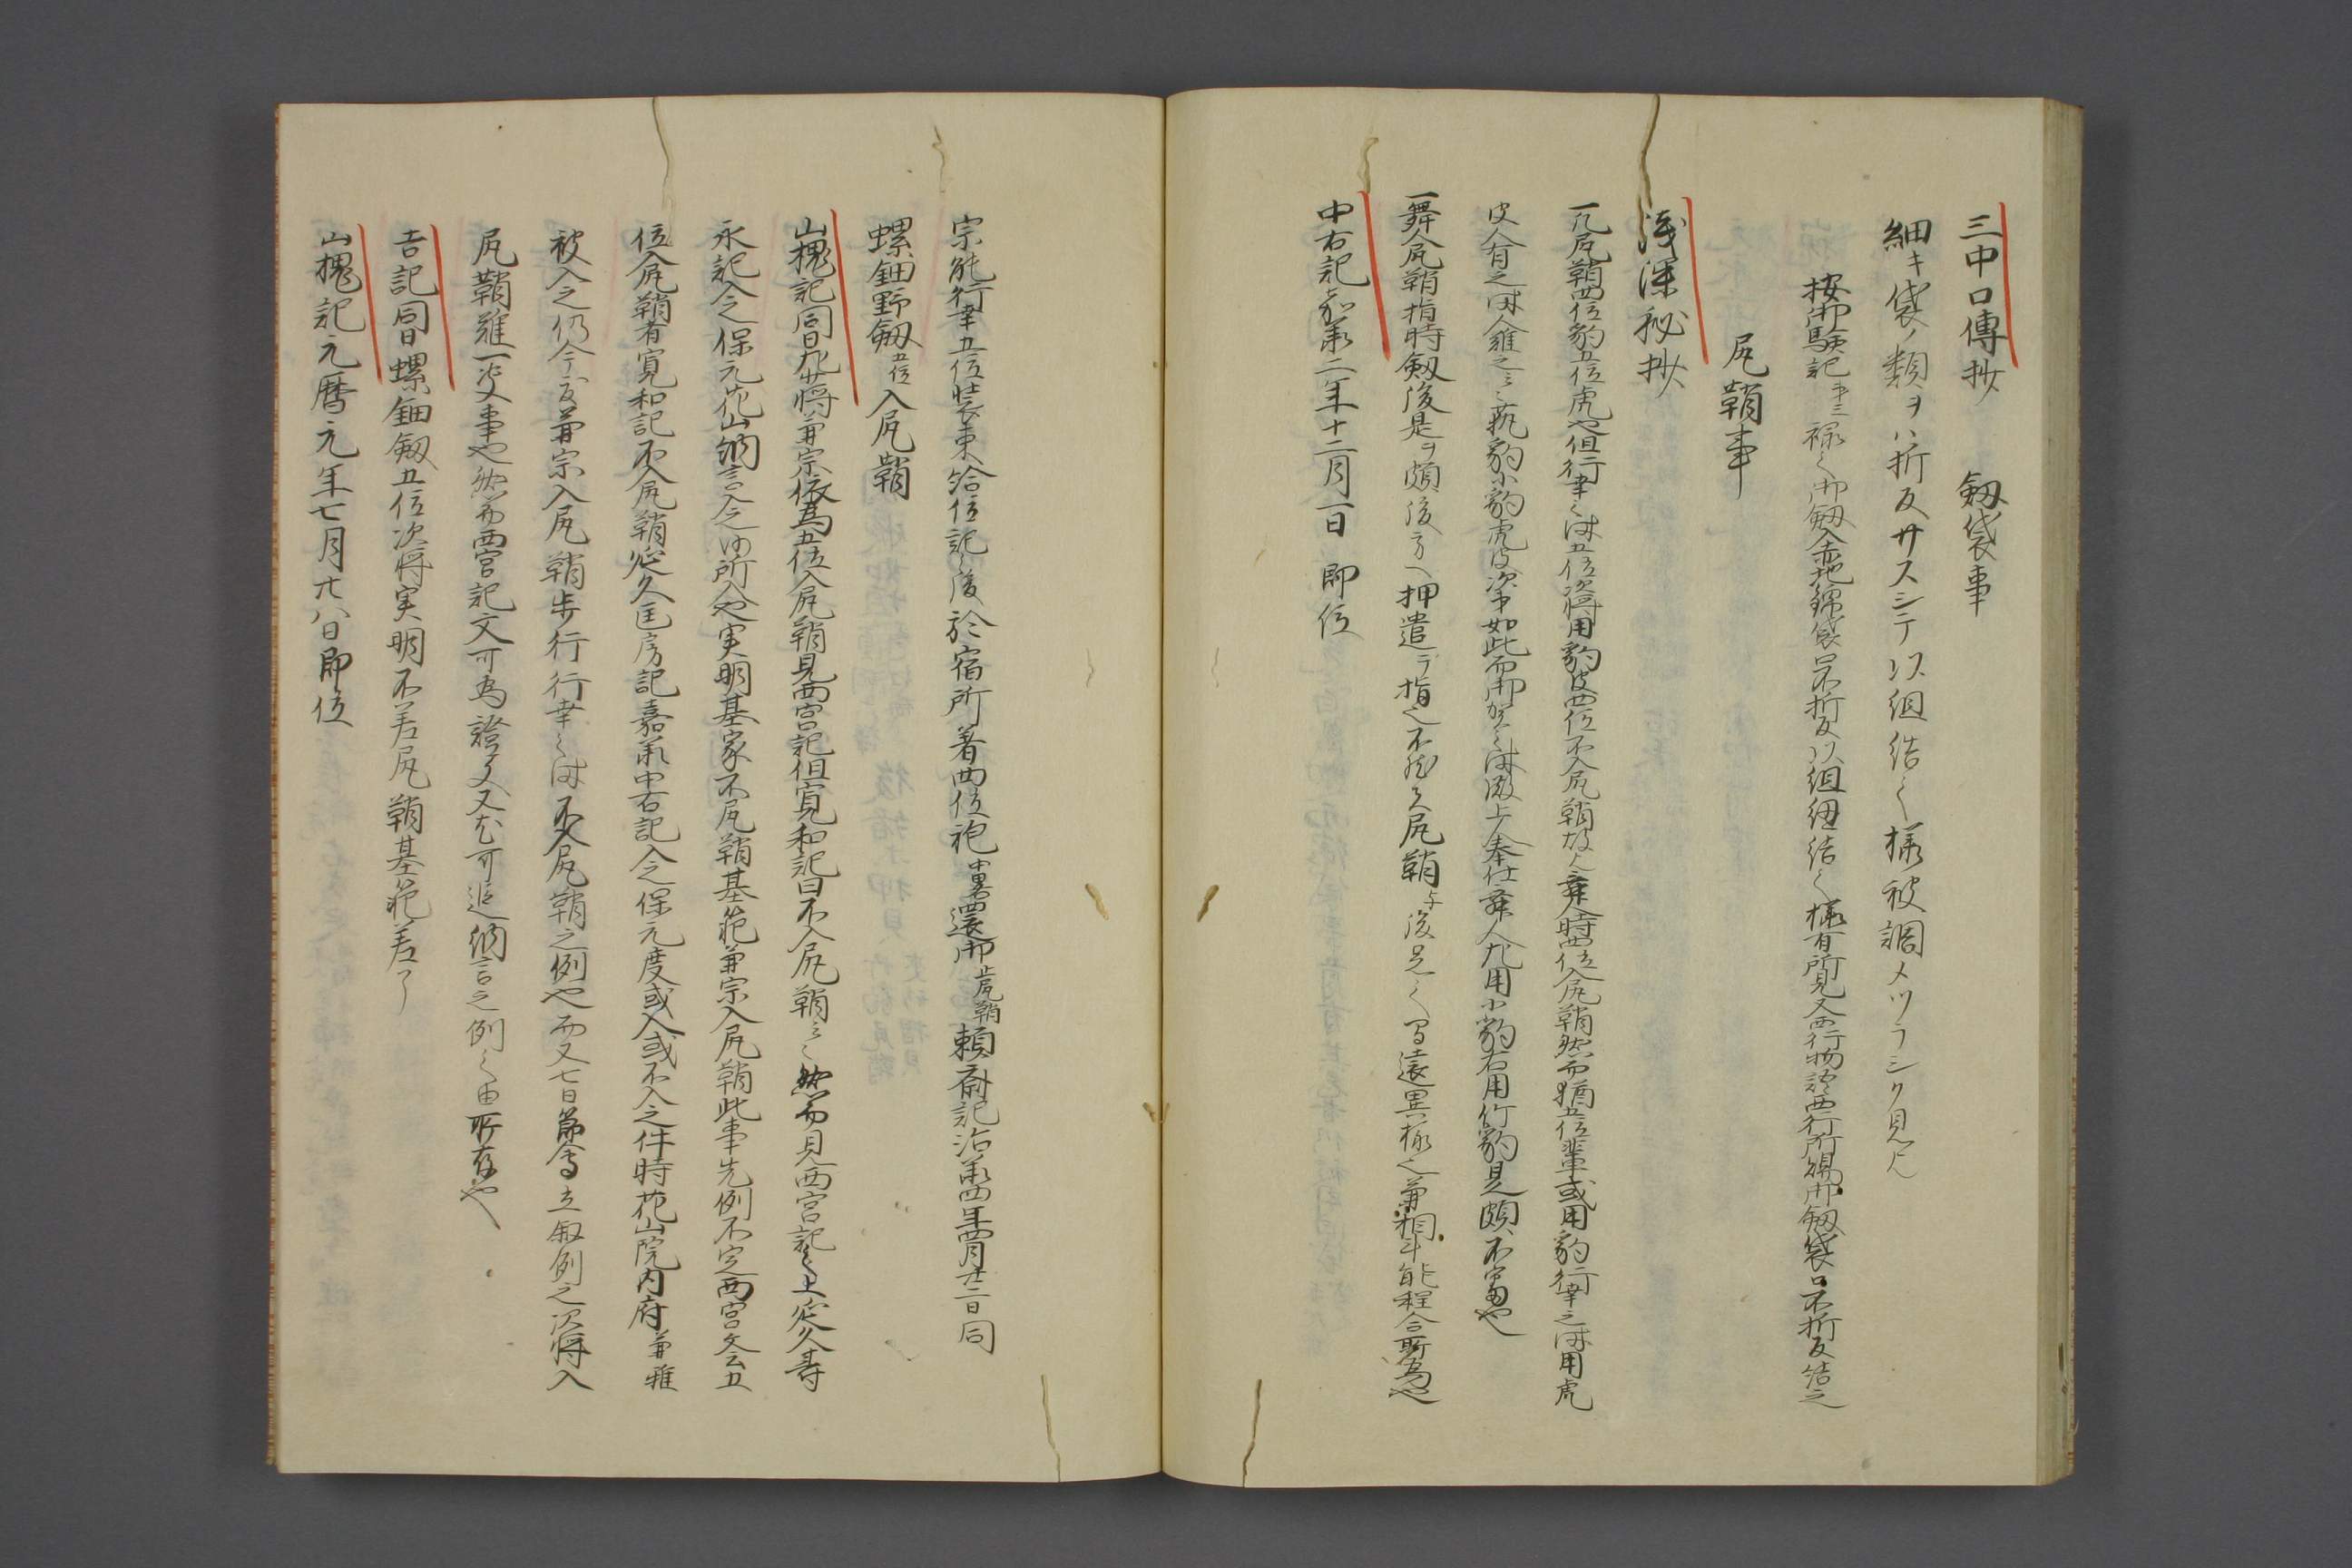 三中口傳抄　劔袋事
細キ袋ノ類ヲハ折反サスシテ以組結之様被調メツラシク見ヘ
按御験記第三禄之御劔入赤地錦袋口不折反以組紐結之様有所見又西行物語西行所賜御劔袋口不折反結之
尻鞘事
浅深秘抄
一凡尻鞘四位豹五位虎也但行幸之時五位次将用豹皮四位不入尻鞘故也舞人時四位入尻鞘然而猶五位輩或用豹行幸之時用虎
皮人有之時人難之云々熟豹小豹虎皮次第如此而御賀之時殿上奉仕舞人左用小豹右用竹豹是頗不審也
一舞人尻鞘指時劔後是ヲ頗後方ヘ押遣テ指之不然ハ尻鞘与後足之間遠異様也兼相計能程令所為也
中右記嘉承二年十二月一日即位
宗能行幸五位装束給位記之後於宿所着四位袍還御止尻鞘頼尉記治承四年四月廿二日同
螺鈿野劔五位入尻鞘
山槐記同日左少将兼宗依為五位入尻鞘見西宮記但寛和記曰不入尻鞘云々然而見西宮記之上定久寿
永記入之保元花山納言入之由所入也実明基家不尻鞘基範兼宗入尻鞘此事先例不定西宮文云五
位入尻鞘有寛和記不入尻鞘定久匡房記嘉承中右記入之保元度或入或不入之件時花山院内府兼雅
被入之仍今度兼宗入尻鞘歩行行幸之時不入尻鞘之例也而又七日節会立叙例之次将入
尻鞘雖一决事也然而西宮記文可為證文又尤可追納言之例之由所存也
吉記同日螺鈿劔五位次将実明不差尻鞘基範差了
山槐記元暦元年七月廿八日即位